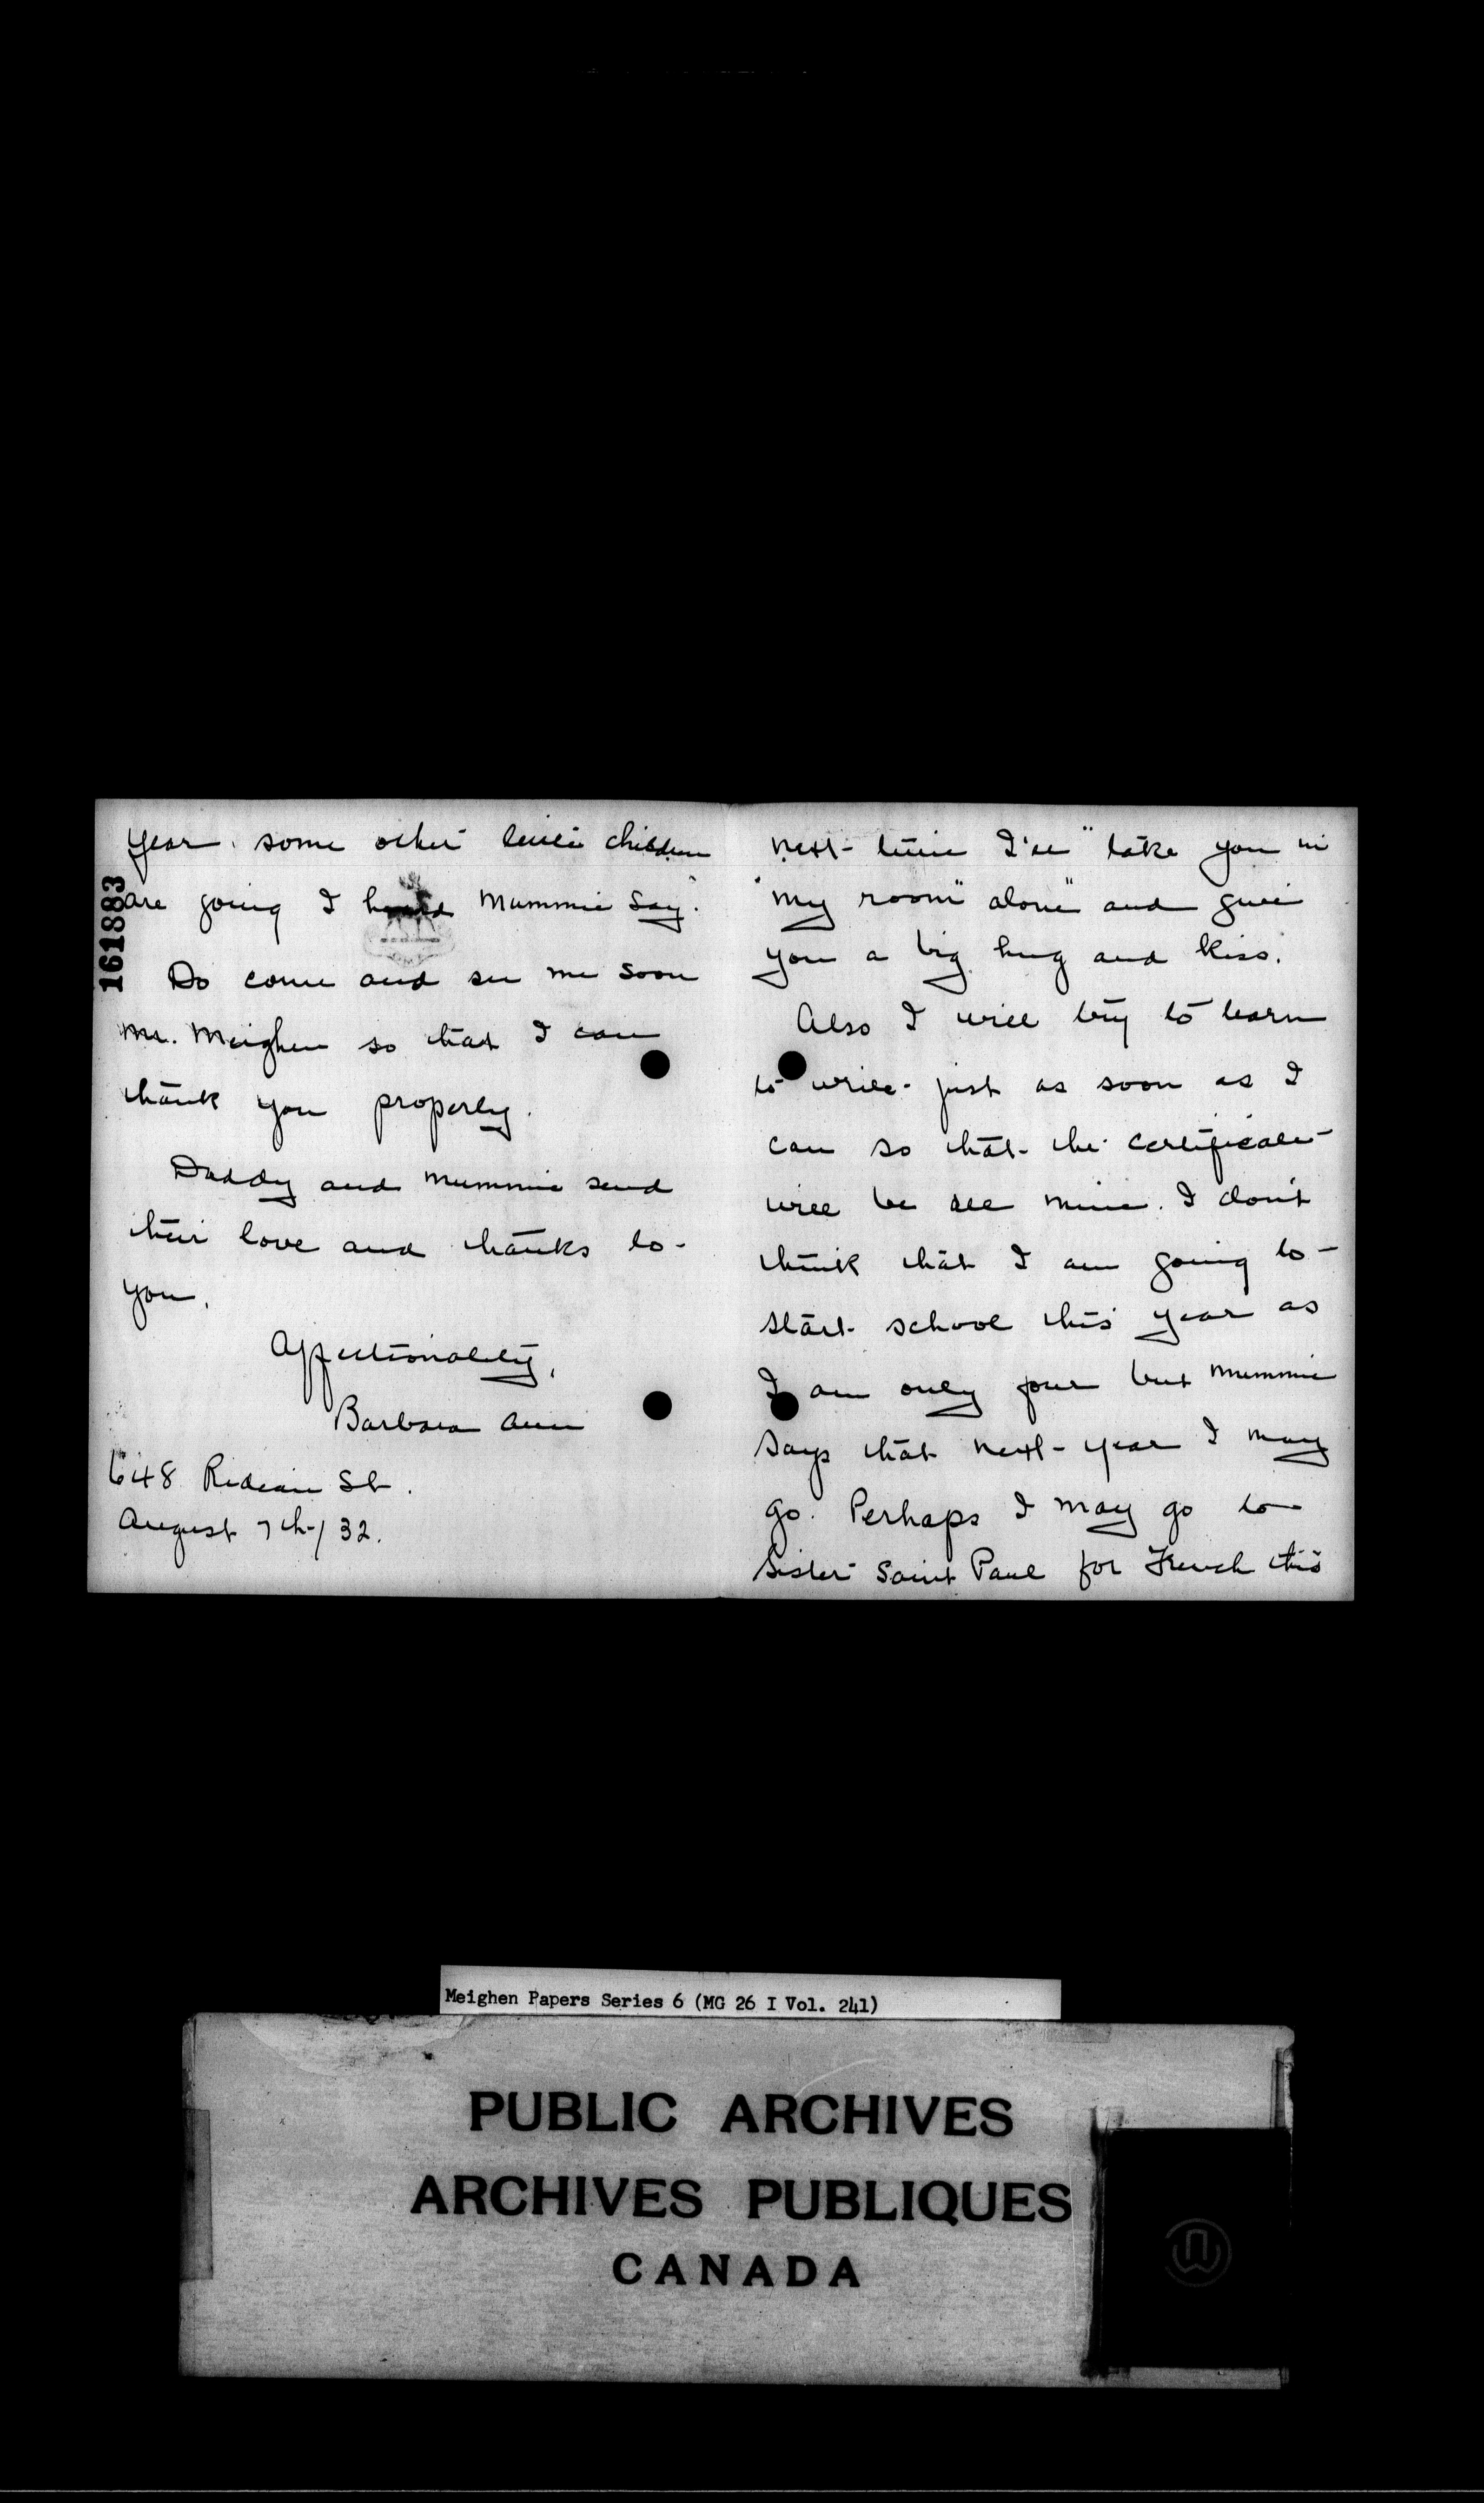 year. some other little children
are going I heard Mummie say.
Do come and see me soon
Mr. Meighen so that I can
thank you properly.
Daddy and Mummie send
their love and thanks to
you.
Affectionately,
Barbara Ann
648 Rideau St.
August 7th/32.
161883
next time I'll "take you in
my room" alone" and give
you a big hug and kiss.
Also I will try to learn
to write just as soon as I
can so that the certificate
will be all mine. I don't
think that I am going to
start school this year as
I am only four but Mummie
says that next year I may
go. Perhaps I may go to
Sister Saint Paul for French this
Meighen Papers Series 6 (MG 26 I Vol. 241)
PUBLIC ARCHIVES
ARCHIVES PUBLIQUES
CANADA